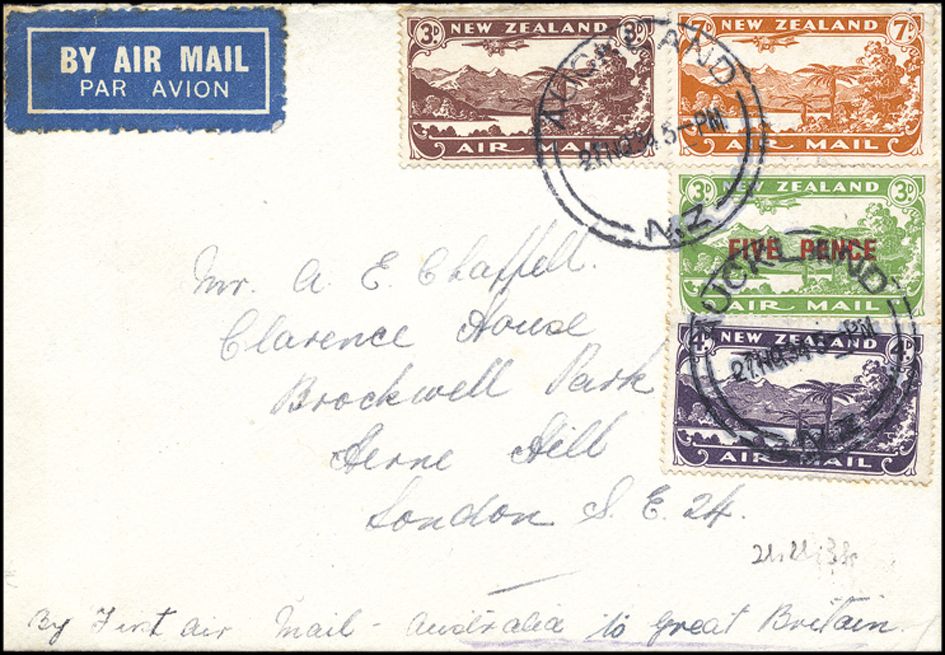 BY AIR MAIL
PAR AVION
3D NEW ZEALAND 3D
AIR MAIL
7D NEW ZEALAND 7D
AIR MAIL
AUCKLAND
27 NO 34 5-PM
N.Z
3D NEW ZEALAND 3D
FIVE PENCE
AIR MAIL
4D NEW ZEALAND 4D
AIR MAIL
AUCKLAND
27 NO 34 5-PM
N.Z
Mr. A. E. Chaffell.
Clarence House
Brockwell Park
Herne Hill
London S. E. 24.
By First air Mail - Australia to Great Britain.